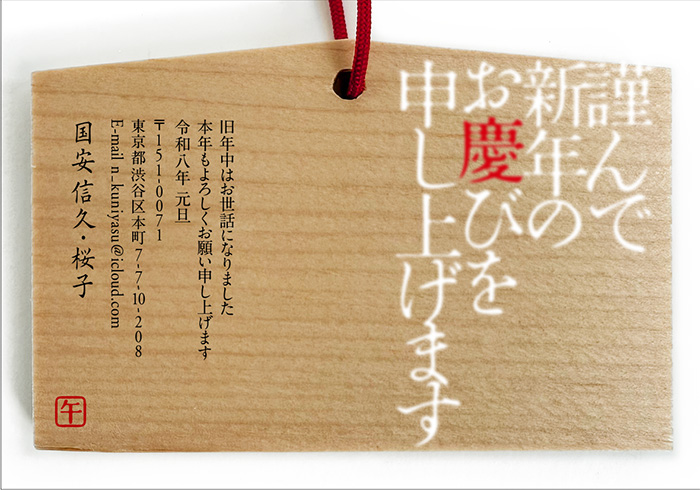 謹んで
新年の
お慶びを
申し上げます
旧年中はお世話になりました
本年もよろしくお願い申し上げます
令和八年 元旦
〒151-0071
東京都渋谷区本町7-7-10-208
E-mail n-kuniyasu@icloud.com
国安信久・桜子
午